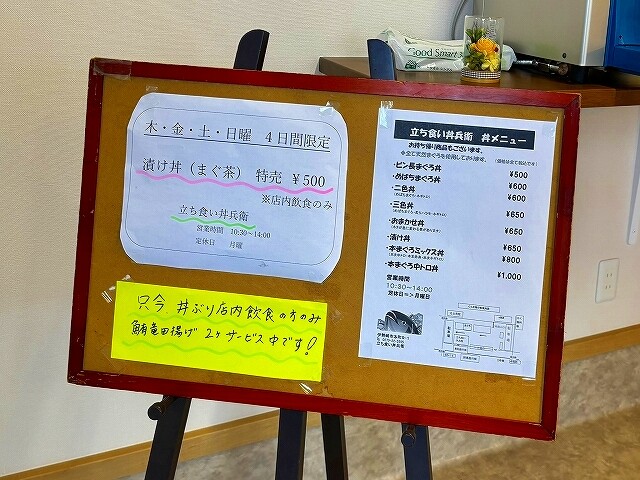 木・金・土・日曜 4日間限定
漬け丼（まぐ茶） 特売 ¥500
※店内飲食のみ
立ち食い丼兵衛
営業時間 10:30～14:00
定休日 月曜
只今 丼ぶり店内飲食の方のみ
鮪竜田揚げ 2ヶサービス中です!
立ち食い丼兵衛 丼メニュー
お持ち帰り商品もございます。
※全て天然まぐろを使用しております。 (価格は全て税込です)
・ビン長まぐろ丼 ¥500
・めばちまぐろ丼 ¥600
・二色丼 ¥600
・三色丼 ¥650
・おまかせ丼 ¥650
・漬け丼 ¥650
・本まぐろミックス丼 ¥800
・本まぐろ中トロ丼 ¥1,000
営業時間
10:30～14:00
定休日＝＞月曜日
立ち食い丼兵衛
Good Smart